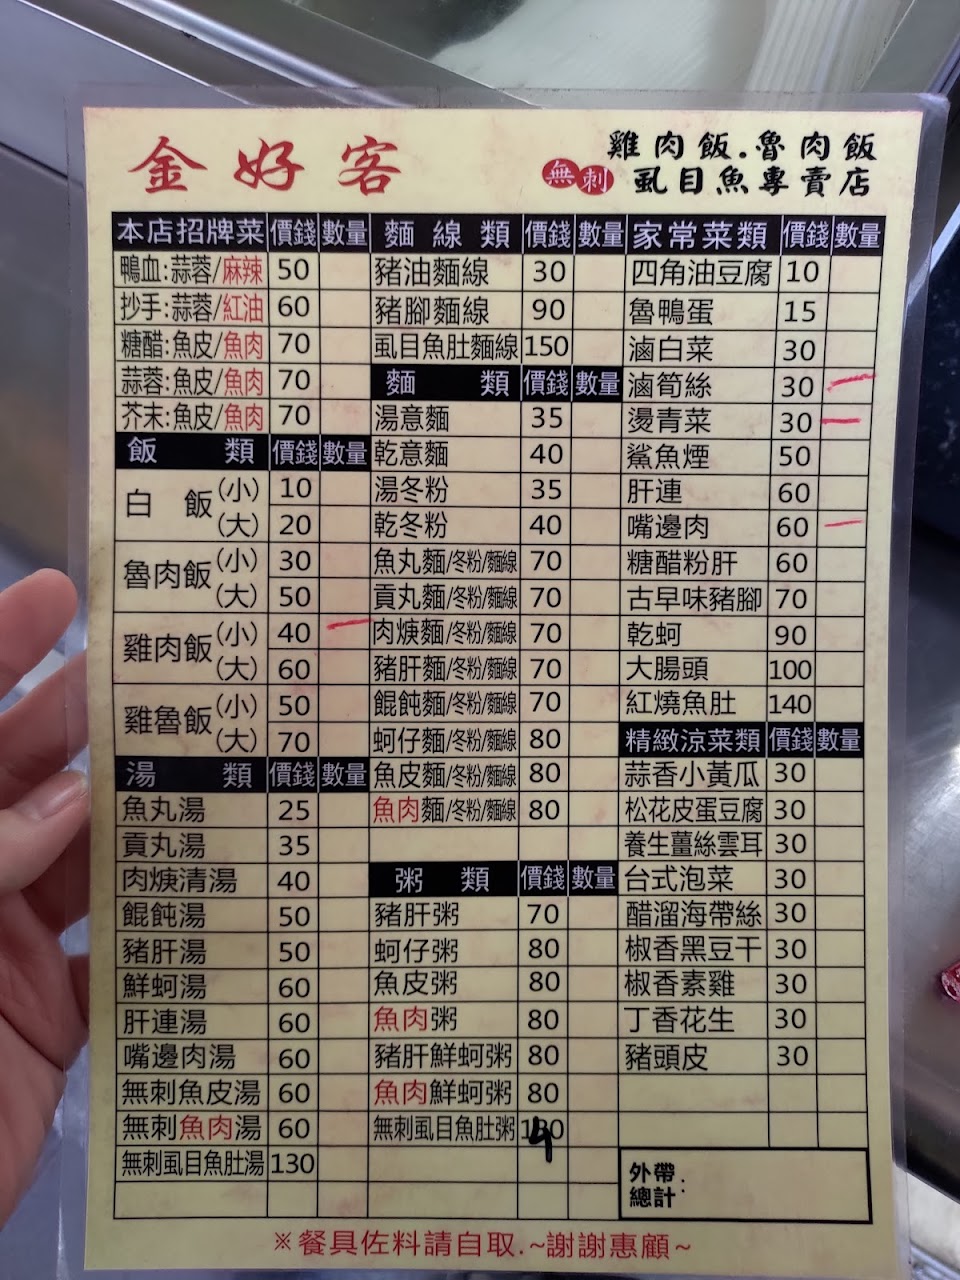 金好客
雞肉飯.魯肉飯
無刺 虱目魚專賣店
本店招牌菜 價錢 數量
鴨血:蒜蓉/麻辣 50
抄手:蒜蓉/紅油 60
糖醋:魚皮/魚肉 70
蒜蓉:魚皮/魚肉 70
芥末:魚皮/魚肉 70
飯 類 價錢 數量
白 飯(小) 10
(大) 20
魯肉飯(小) 30
(大) 50
雞肉飯(小) 40
(大) 60
雞魯飯(小) 50
(大) 70
湯 類 價錢 數量
魚丸湯 25
貢丸湯 35
肉焿清湯 40
餛飩湯 50
豬肝湯 50
鮮蚵湯 60
肝連湯 60
嘴邊肉湯 60
無刺魚皮湯 60
無刺魚肉湯 60
無刺虱目魚肚湯 130
麵 線 類 價錢 數量
豬油麵線 30
豬腳麵線 90
虱目魚肚麵線 150
麵 類 價錢 數量
湯意麵 35
乾意麵 40
湯冬粉 35
乾冬粉 40
魚丸麵/冬粉/麵線 70
貢丸麵/冬粉/麵線 70
肉焿麵/冬粉/麵線 70
豬肝麵/冬粉/麵線 70
餛飩麵/冬粉/麵線 70
蚵仔麵/冬粉/麵線 80
魚皮麵/冬粉/麵線 80
魚肉麵/冬粉/麵線 80
粥 類 價錢 數量
豬肝粥 70
蚵仔粥 80
魚皮粥 80
魚肉粥 80
豬肝鮮蚵粥 80
魚肉鮮蚵粥 80
無刺虱目魚肚粥 140
家常菜類 價錢 數量
四角油豆腐 10
魯鴨蛋 15
滷白菜 30
滷筍絲 30
燙青菜 30
鯊魚煙 50
肝連 60
嘴邊肉 60
糖醋粉肝 60
古早味豬腳 70
乾蚵 90
大腸頭 100
紅燒魚肚 140
精緻涼菜類 價錢 數量
蒜香小黃瓜 30
松花皮蛋豆腐 30
養生薑絲雲耳 30
台式泡菜 30
醋溜海帶絲 30
椒香黑豆干 30
椒香素雞 30
丁香花生 30
豬頭皮 30
外帶
總計:
※餐具佐料請自取.~謝謝惠顧~